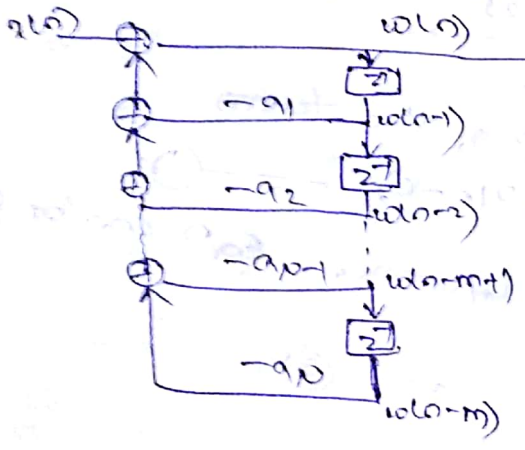 x(n) w(n)
z⁻¹
-a₁ w(n-1)
z⁻¹
-a₂ w(n-2)
-a_N-1 w(n-m+1)
z⁻¹
-a_N w(n-m)